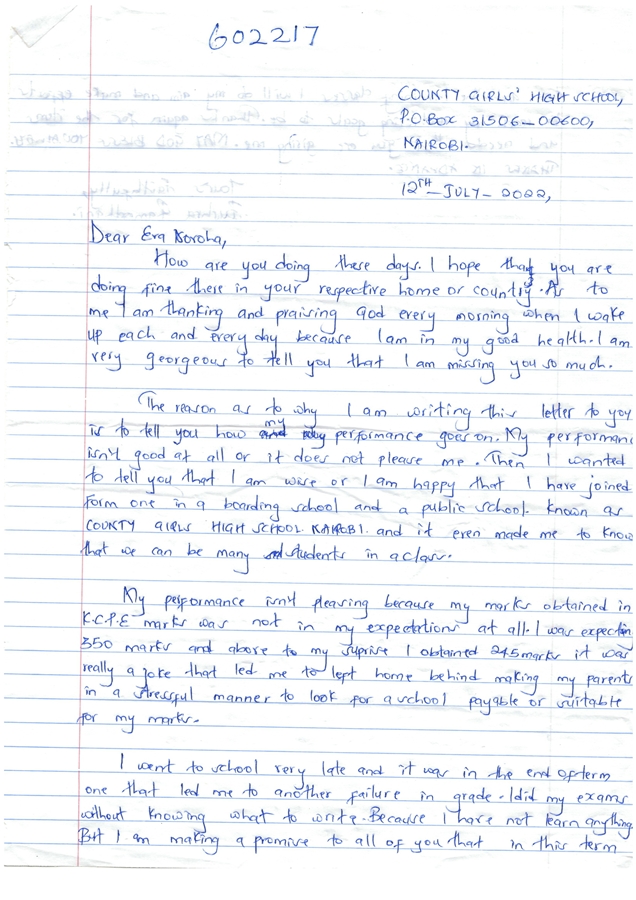 602217
COUNTY GIRLS' HIGH SCHOOL,
P.O.BOX 31506-00600,
NAIROBI.
12TH-JULY-2022,
Dear Eva
How are you doing these days. I hope that you are
doing fine there in your respective home or country. As to
me I am thanking and praising God every morning when I wake
up each and every day because I am in my good health. I am
very georgeous to tell you that I am missing you so much.
The reason as to why I am writing this letter to you
is to tell you how my performance goes on. My performanc
isn't good at all or it does not please me. Then I wanted
to tell you that I am wise or I am happy that I have joined
form one in a boarding school and a public school. known as
COUNTY GIRLS HIGH SCHOOL NAIROBI. and it even made me to know
that we can be many students in a class.
My performance isn't pleasing because my marks obtained in
K.C.P.E marks was not in my expectations at all. I was expectin
350 marks and above to my suprise I obtained 245 marks it was
really a joke that led me to left home behind making my parents
in a stressful manner to look for a school payable or suitable
for my marks.
I went to school very late and it was in the end of term
one that led me to another failure in grade. I did my exams
without knowing what to write. Because I have not learn anything.
But I am making a promise to all of you that in this term